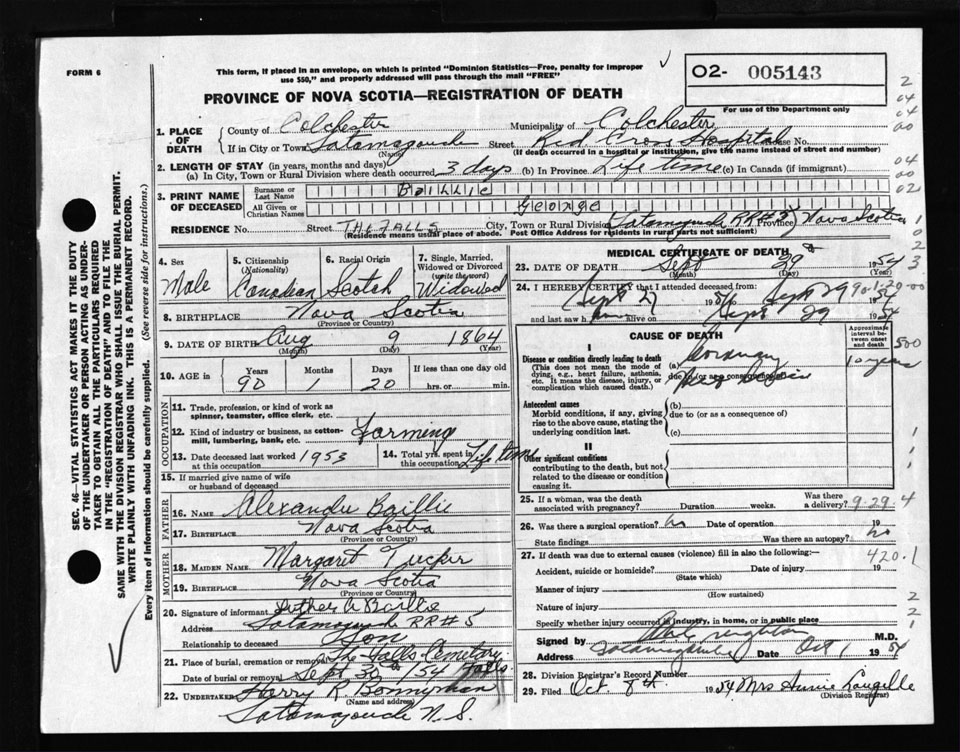 FORM 6
This form, if placed in an envelope, on which is printed "Dominion Statistics—Free, penalty for improper
use $50," and properly addressed will pass through the mail "FREE"
O2- 005143
PROVINCE OF NOVA SCOTIA—REGISTRATION OF DEATH
For use of the Department only
1. PLACE OF DEATH
County of Colchester Municipality of Colchester
If in City or Town Tatamagouche (Name) Street Red Cross Hospital House No.
(If death occurred in a hospital or institution, give the name instead of street and number)
2. LENGTH OF STAY (in years, months and days)
(a) In City, Town or Rural Division where death occurred 3 days (b) In Province Life time (c) In Canada (if immigrant)
3. PRINT NAME OF DECEASED
Surname or Last Name Baillie
All Given or Christian Names George
RESIDENCE No. Street THE FALLS City, Town or Rural Division Tatamagouche RR#5 Province Nova Scotia
(Residence means usual place of abode. Post Office Address for residents in rural parts not sufficient)
4. Sex
Male
5. Citizenship (Nationality)
Canadian
6. Racial Origin
Scotch
7. Single, Married, Widowed or Divorced (write the word)
Widowed
8. BIRTHPLACE Nova Scotia
(Province or Country)
9. DATE OF BIRTH Aug 9 1864
(Month) (Day) (Year)
10. AGE in Years Months Days If less than one day old
90 1 20 hrs. or min.
OCCUPATION
11. Trade, profession, or kind of work as
spinner, teamster, office clerk, etc.
12. Kind of industry or business, as cotton-
mill, lumbering, bank, etc. Farming
13. Date deceased last worked at this occupation 1953
14. Total yrs. spent in this occupation Life time
15. If married give name of wife
or husband of deceased
FATHER
16. NAME Alexander Baillie
17. BIRTHPLACE Nova Scotia
(Province or Country)
MOTHER
18. MAIDEN NAME Margaret Tucker
19. BIRTHPLACE Nova Scotia
(Province or Country)
20. Signature of informant Baillie
Address Tatamagouche RR#5
Relationship to deceased Son
21. Place of burial, cremation or removal The Falls Cemetery
Date of burial or removal Sept 30th /54 Falls
22. UNDERTAKER Harry R Bonnyman
(Name and address)
Tatamagouche N.S.
MEDICAL CERTIFICATE OF DEATH
23. DATE OF DEATH Sept 29 1954
(Month) (Day) (Year)
24. I HEREBY CERTIFY that I attended deceased from:
Sept 27 1954 Sept 29 1954
and last saw him alive on Sept 29 1954
90-1-20-00
CAUSE OF DEATH
Approximate interval between onset and death
I
Disease or condition directly leading to death (a) Coronary
(This does not mean the mode of
dying, e.g., heart failure, asthenia,
etc. It means the disease, injury, or
complication which caused death.)
due to (or as a consequence of)
10 years
500
Antecedent causes (b)
Morbid conditions, if any, giving
rise to the above cause, stating the
underlying condition last.
due to (or as a consequence of)
(c)
II
Other significant conditions
contributing to the death, but not
related to the disease or condition
causing it.
25. If a woman, was the death
associated with pregnancy? Duration weeks. Was there a delivery?
9-29-4
26. Was there a surgical operation? No Date of operation 19
State findings Was there an autopsy? no
27. If death was due to external causes (violence) fill in also the following:—
420.1
Accident, suicide or homicide? Date of injury 19
(State which)
Manner of injury
(How sustained)
Nature of injury
Specify whether injury occurred in industry, in home, or in public place
Signed by Creighton M.D.
Address Tatamagouche Date Oct 1 1954
28. Division Registrar's Record Number
29. Filed Oct 8th 1954 Mrs Annie Langille
(Division Registrar)
SEC. 46—VITAL STATISTICS ACT MAKES IT THE DUTY
OF THE UNDERTAKER OR PERSON ACTING AS UNDER-
TAKER TO OBTAIN ALL THE PARTICULARS REQUIRED
IN THE "REGISTRATION OF DEATH" AND TO FILE THE
SAME WITH THE DIVISION REGISTRAR WHO SHALL ISSUE THE BURIAL PERMIT.
WRITE PLAINLY WITH UNFADING INK. THIS IS A PERMANENT RECORD.
Every item of information should be carefully supplied. (See reverse side for instructions.)